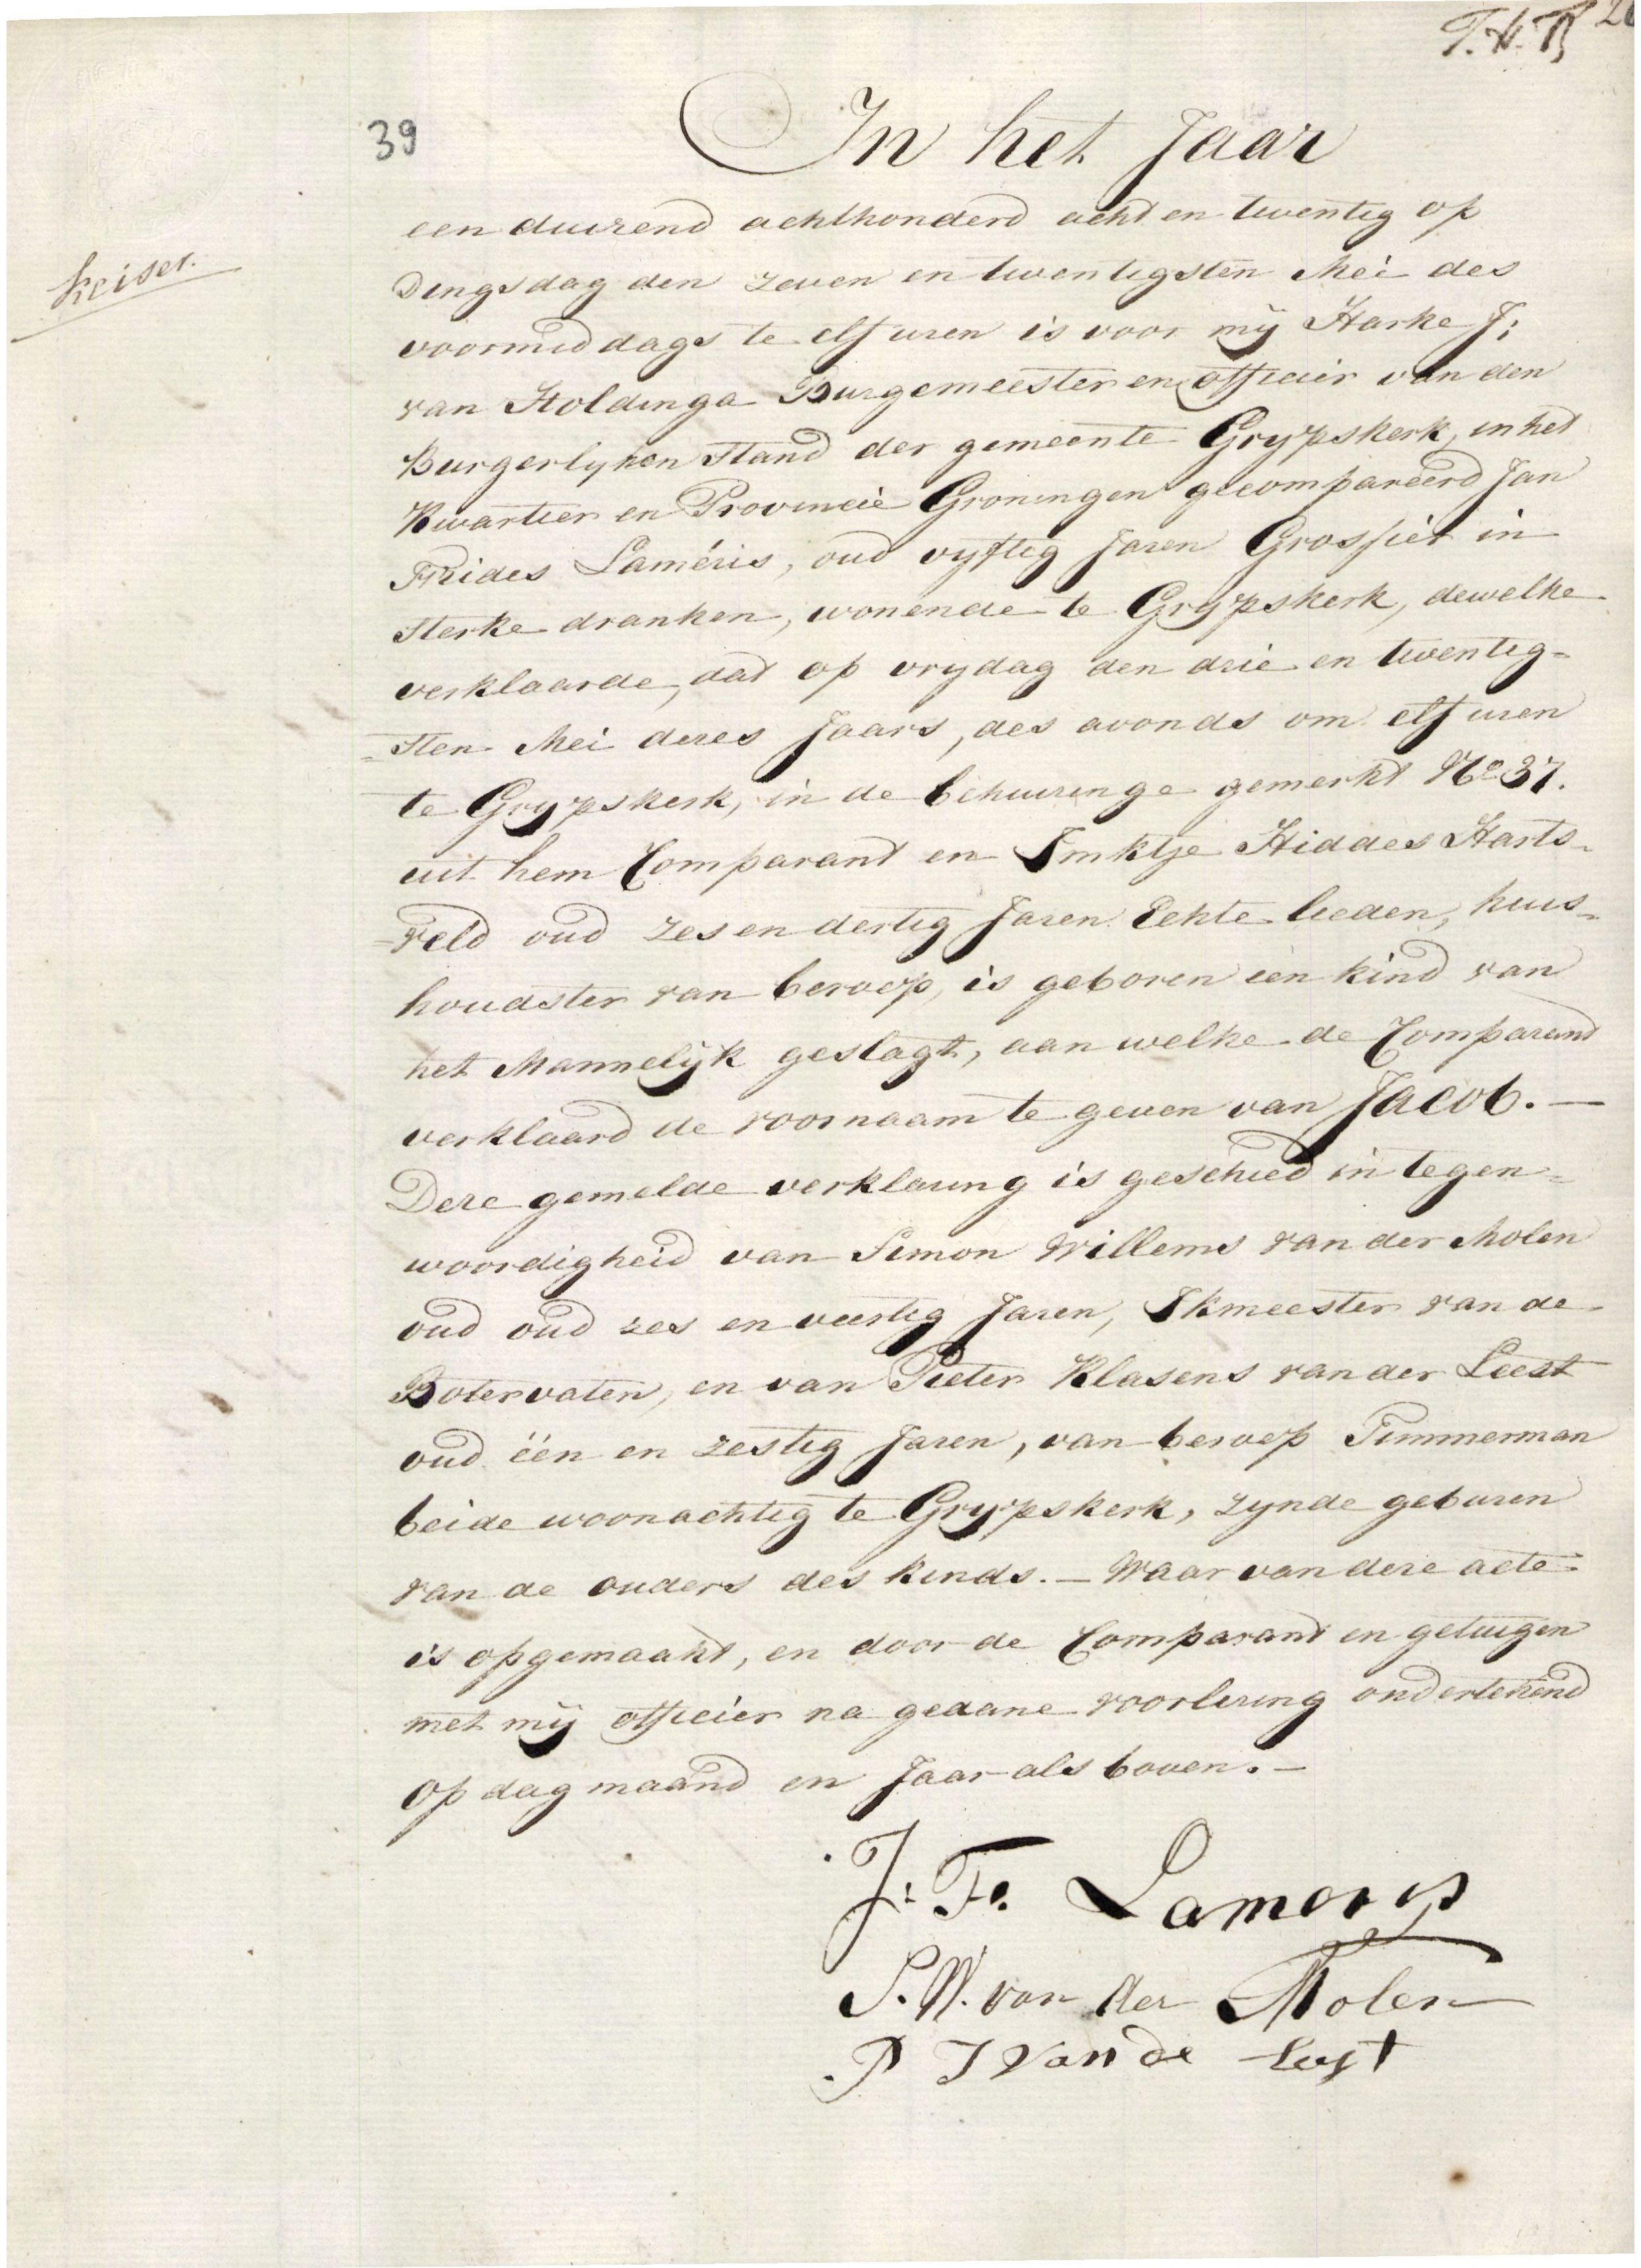 T.H.B
39
In het Jaar
een duizend achthonderd acht en twentig op
Keiser.
Dingsdag den zeven en twentigsten Mei des
voormiddags te elf uren is voor mij Harke J:
van Holdinga Burgemeester en officier van den
Burgerlyken Stand der gemeente Grypskerk, in het
Kwartier en Provincie Groningen gecompareerd Jan
Freides Laméris, oud vyftig Jaren Grossier in
Sterke dranken, wonende te Grypskerk, dewelke
verklaarde, dat op vrydag den drie en twentig=
=sten Mei dezes Jaars, des avonds om elf uren
te Grypskerk, in de behuizinge gemerkt No 37.
uit hem Comparant en Imktje Hiddes Harts=
=veld oud zes en dertig Jaren Echte lieden, huis=
houdster van beroep, is geboren een kind van
het Mannelijk geslagt, aan welke de Comparand
verklaard de voornaam te geven van Jacob. —
Deze gemelde verklaring is geschied in tegen=
woordigheid van Simon Willems van der Molen
oud oud zes en veertig Jaren, Ikmeester van de
Botervaten, en van Pieter Klasens van der Leest
oud één en zestig Jaren, van beroep Timmerman
beide woonachtig te Grypskerk, zynde geburen
van de ouders des kinds. — Waar van deze acte
is opgemaakt, en door de Comparant en getuigen
met mij officier na gedane voorlezing ondertekend
op dag maand en Jaar als boven. —
J: F. Lameris
S. W. van der Molen
P J van de Leest